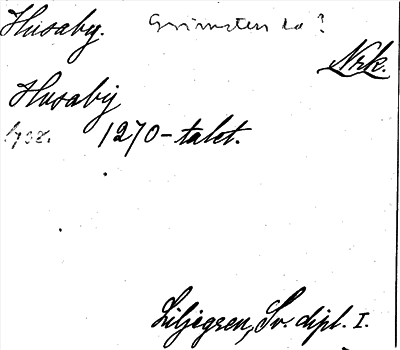 Husaby. Grimsten hd?
Nrk.
Husaby
1270-talet.
Liljegren, Sv. dipl. I.